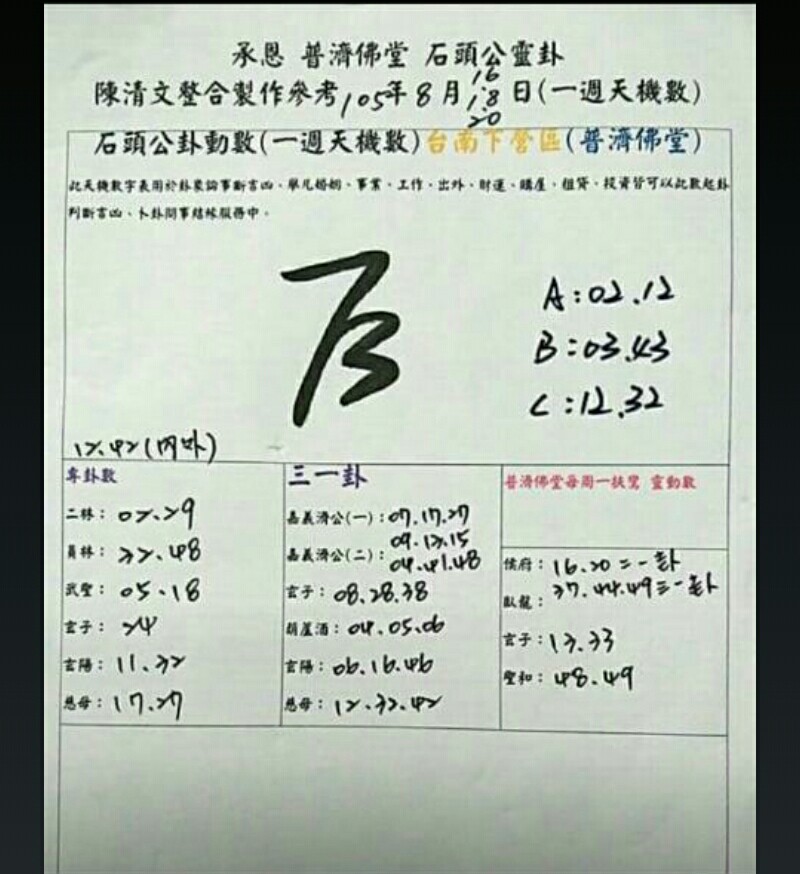 承恩 普濟佛堂 石頭公靈卦
陳清文整合製作參考105年8月16.18.20日(一週天機數)
石頭公卦動數(一週天機數)台南下營區(普濟佛堂)
此天機數字義用於卦象論事斷吉凶、舉凡婚姻、事業、工作、出外、財運、購屋、租賃、投資皆可以此數起卦
判斷吉凶、卜卦問事結緣服務中。
A:02.12
B:03.43
C:12.32
12.42(內外)
專卦數
二林:02.29
員林:32.48
武聖:05.18
玄子:24
玄陽:11.32
慈母:17.27
三一卦
嘉義濟公(一):07.17.27
嘉義濟公(二):09.13.15
04.41.48
玄子:08.28.38
葫蘆酒:04.05.06
玄陽:06.16.46
慈母:12.32.42
普濟佛堂每周一扶鸞 靈動數
候府:16.20=一卦
臥龍:37.44.49=一卦
玄子:13.33
聖和:48.49